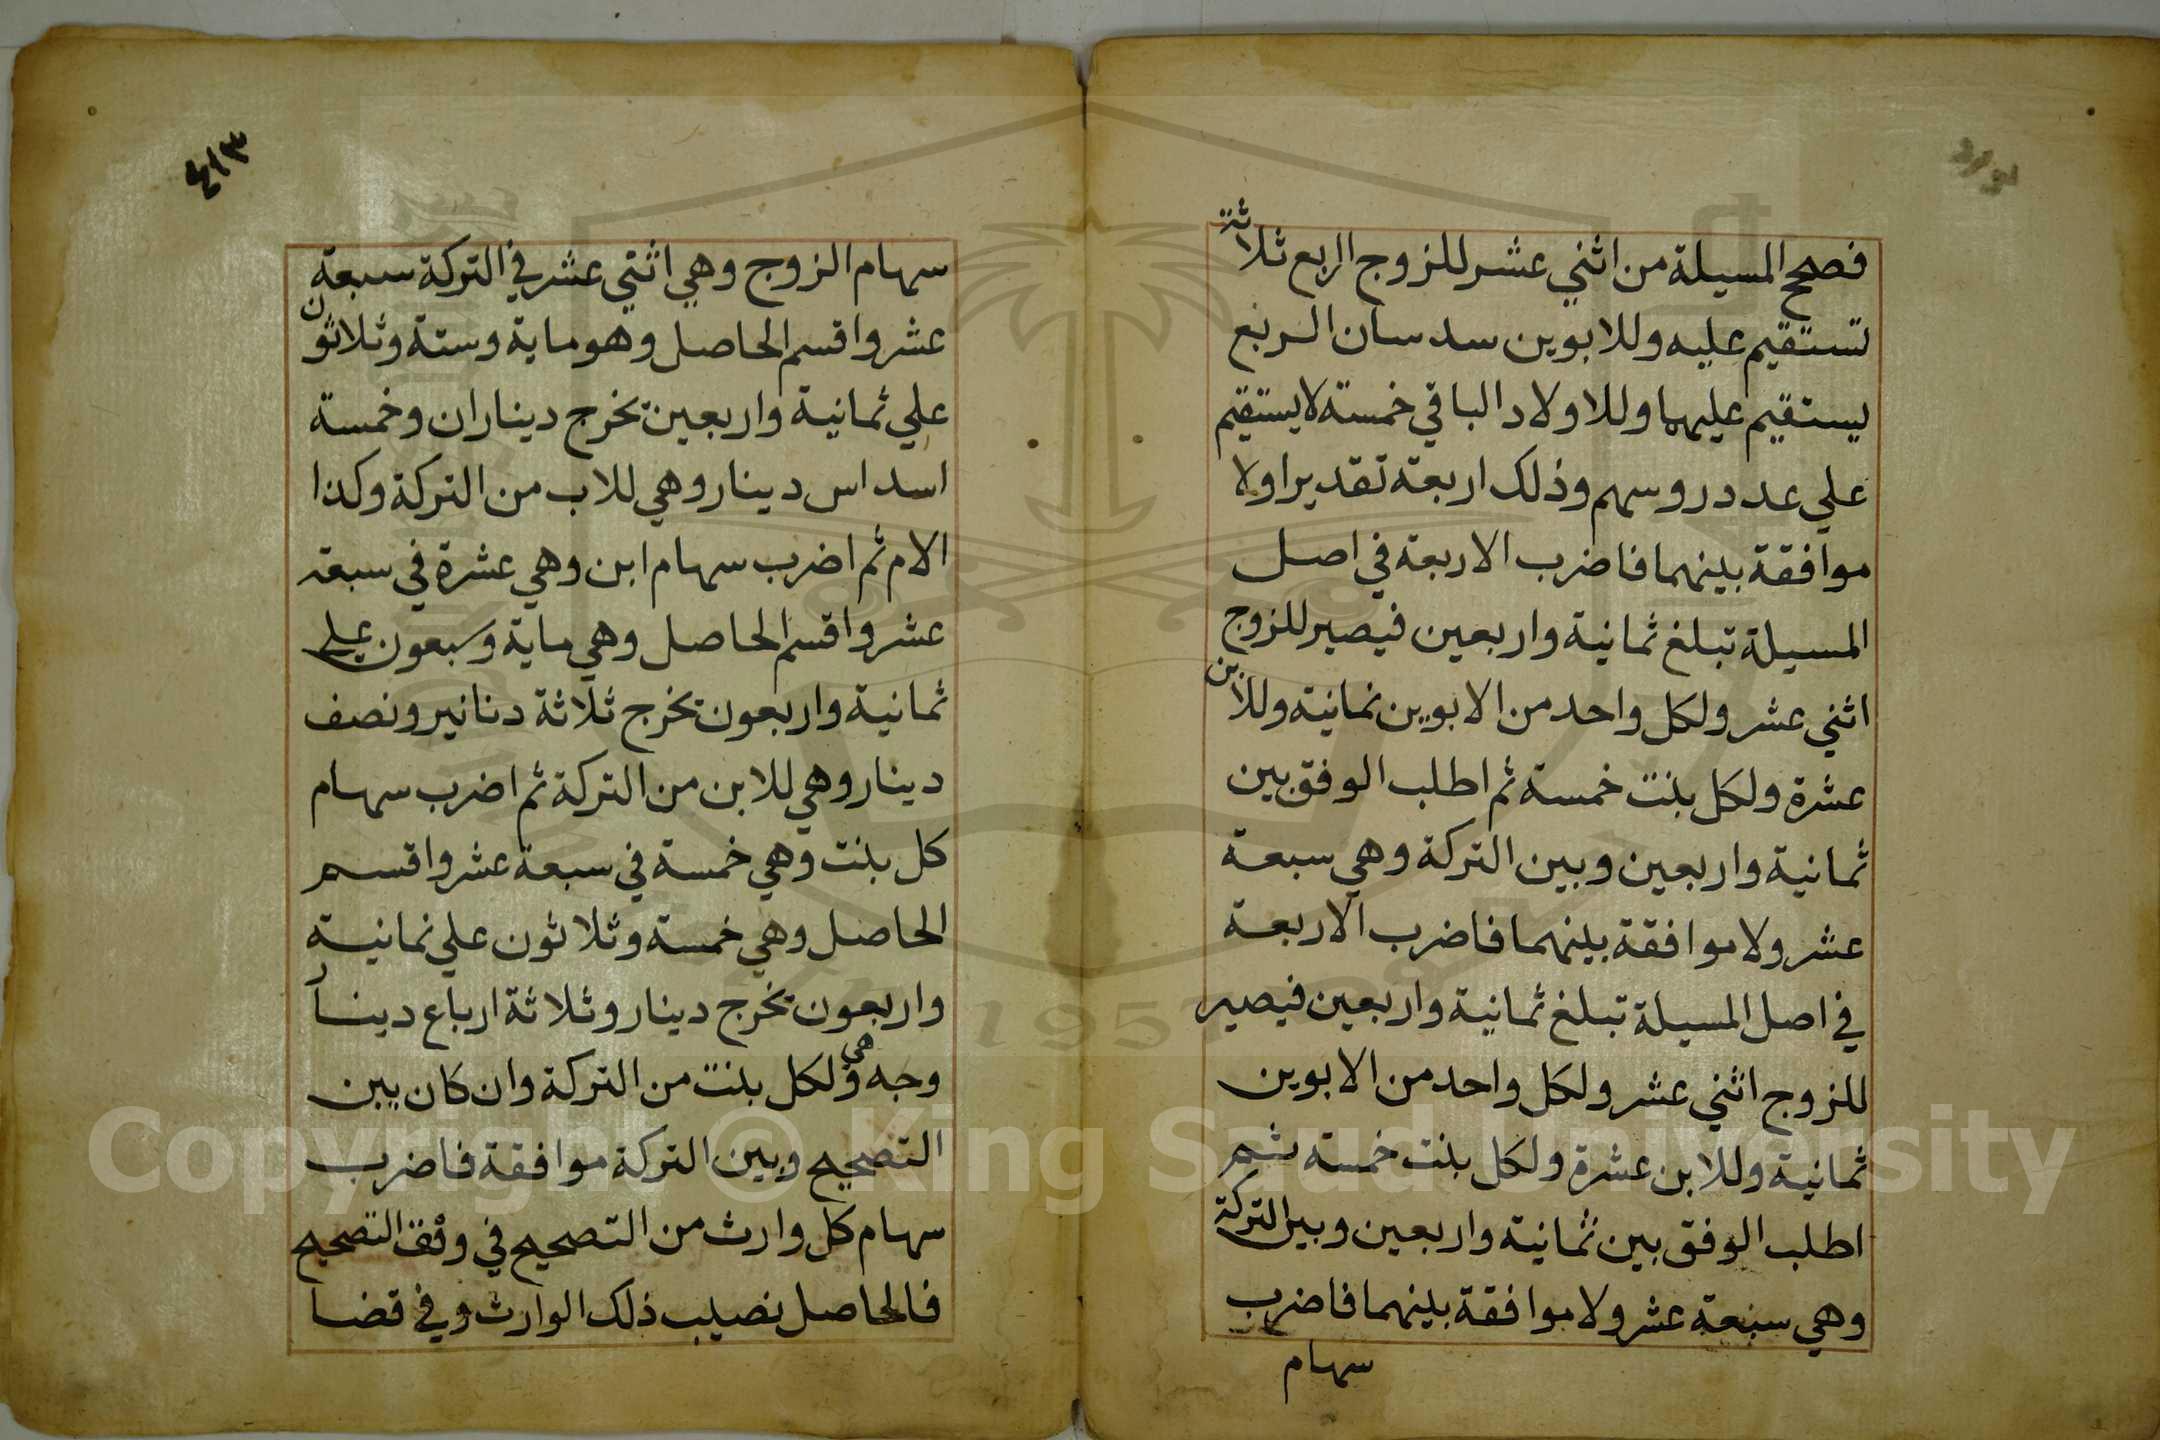 فصحح المسيلة من اثني عشر للزوج الربع ثلاثة
تستقيم عليه وللابوين سدسان الربع
يستقيم عليهما وللاولاد الباقي خمسة لا يستقيم
علي عدد روسهم وذلك اربعة تقديرا ولا
موافقة بينهما فاضرب الاربعة في اصل
المسيلة تبلغ ثمانية واربعين فيصير للزوج
اثني عشر ولكل واحد من الابوين ثمانية وللابن
عشرة ولكل بنت خمسة ثم اطلب الوفق بين
ثمانية واربعين وبين التركة وهي سبعة
عشر ولا موافقة بينهما فاضرب الاربعة
في اصل المسيلة تبلغ ثمانية واربعين فيصير
للزوج اثني عشر ولكل واحد من الابوين
ثمانية وللابن عشرة ولكل بنت خمسة ثم
اطلب الوفق بين ثمانية واربعين وبين التركة
وهي سبعة عشر ولا موافقة بينهما فاضرب
سهام
٤١٣
سهام الزوج وهي اثني عشر في التركة سبعة
عشر واقسم الحاصل وهو ماية وستة وثلاثون
علي ثمانية واربعين تخرج ديناران وخمسة
اسداس دينار وهي للاب من التركة وكذا
الام ثم اضرب سهام ابن وهي عشرة في سبعة
عشر واقسم الحاصل وهي ماية وسبعون علي
ثمانية واربعون تخرج ثلاثة دنانير ونصف
دينار وهي للابن من التركة ثم اضرب سهام
كل بنت وهي خمسة في سبعة عشر واقسم
الحاصل وهي خمسة وثلاثون علي ثمانية
واربعون تخرج دينار وثلاثة ارباع دينار
وجه وهي لكل بنت من التركة وان كان بين
التصحيح وبين التركة موافقة فاضرب
سهام كل وارث من التصحيح في وفق التصحيح
فالحاصل نصيب ذلك الوارث وفي قضا
Copyright © King Saud University
1957